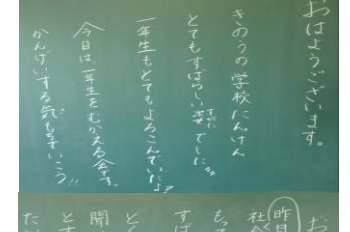 おはようございます。
きのうの学校たんけん
とてもすばらしい姿でした!!
一年生もとてもよろこんでいたよ!
今日は一年生をむかえる会です。
かんげいする気もちでいこう!!
お
昨日
社会
もっ
すば
とく
開
とす
たい